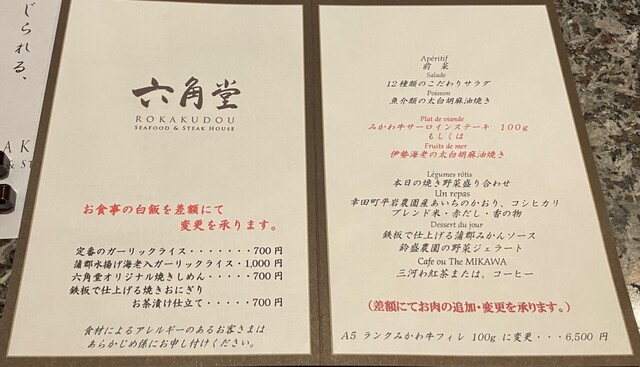 じられる、
六角堂
ROKAKUDOU
SEAFOOD & STEAK HOUSE
お食事の白飯を差額にて
変更を承ります。
定番のガーリックライス・・・・・・・700円
蒲郡水揚げ海老入ガーリックライス・1,000円
六角堂オリジナル焼きしめん・・・・・700円
鉄板で仕上げる焼きおにぎり
お茶漬け仕立て・・・・・700円
食材によるアレルギーのあるお客さまは
あらかじめ係にお申し付けください。
Apéritif
前菜
Salade
12種類のこだわりサラダ
Poisson
魚介類の太白胡麻油焼き
Plat de viande
みかわ牛サーロインステーキ 100g
もしくは
Fruits de mer
伊勢海老の太白胡麻油焼き
Légumes rôtis
本日の焼き野菜盛り合わせ
Un repas
幸田町平岩農園産あいちのかおり、コシヒカリ
ブレンド米・赤だし・香の物
Dessert du jour
鉄板で仕上げる蒲郡みかんソース
鈴盛農園の野菜ジェラート
Cafe ou The MIKAWA
三河わ紅茶または、コーヒー
(差額にてお肉の追加・変更を承ります。)
A5 ランクみかわ牛フィレ 100g に変更・・・6,500円